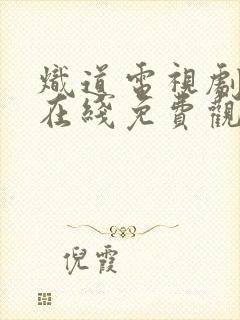 熾道電視劇
在綫免費觀
倪霞